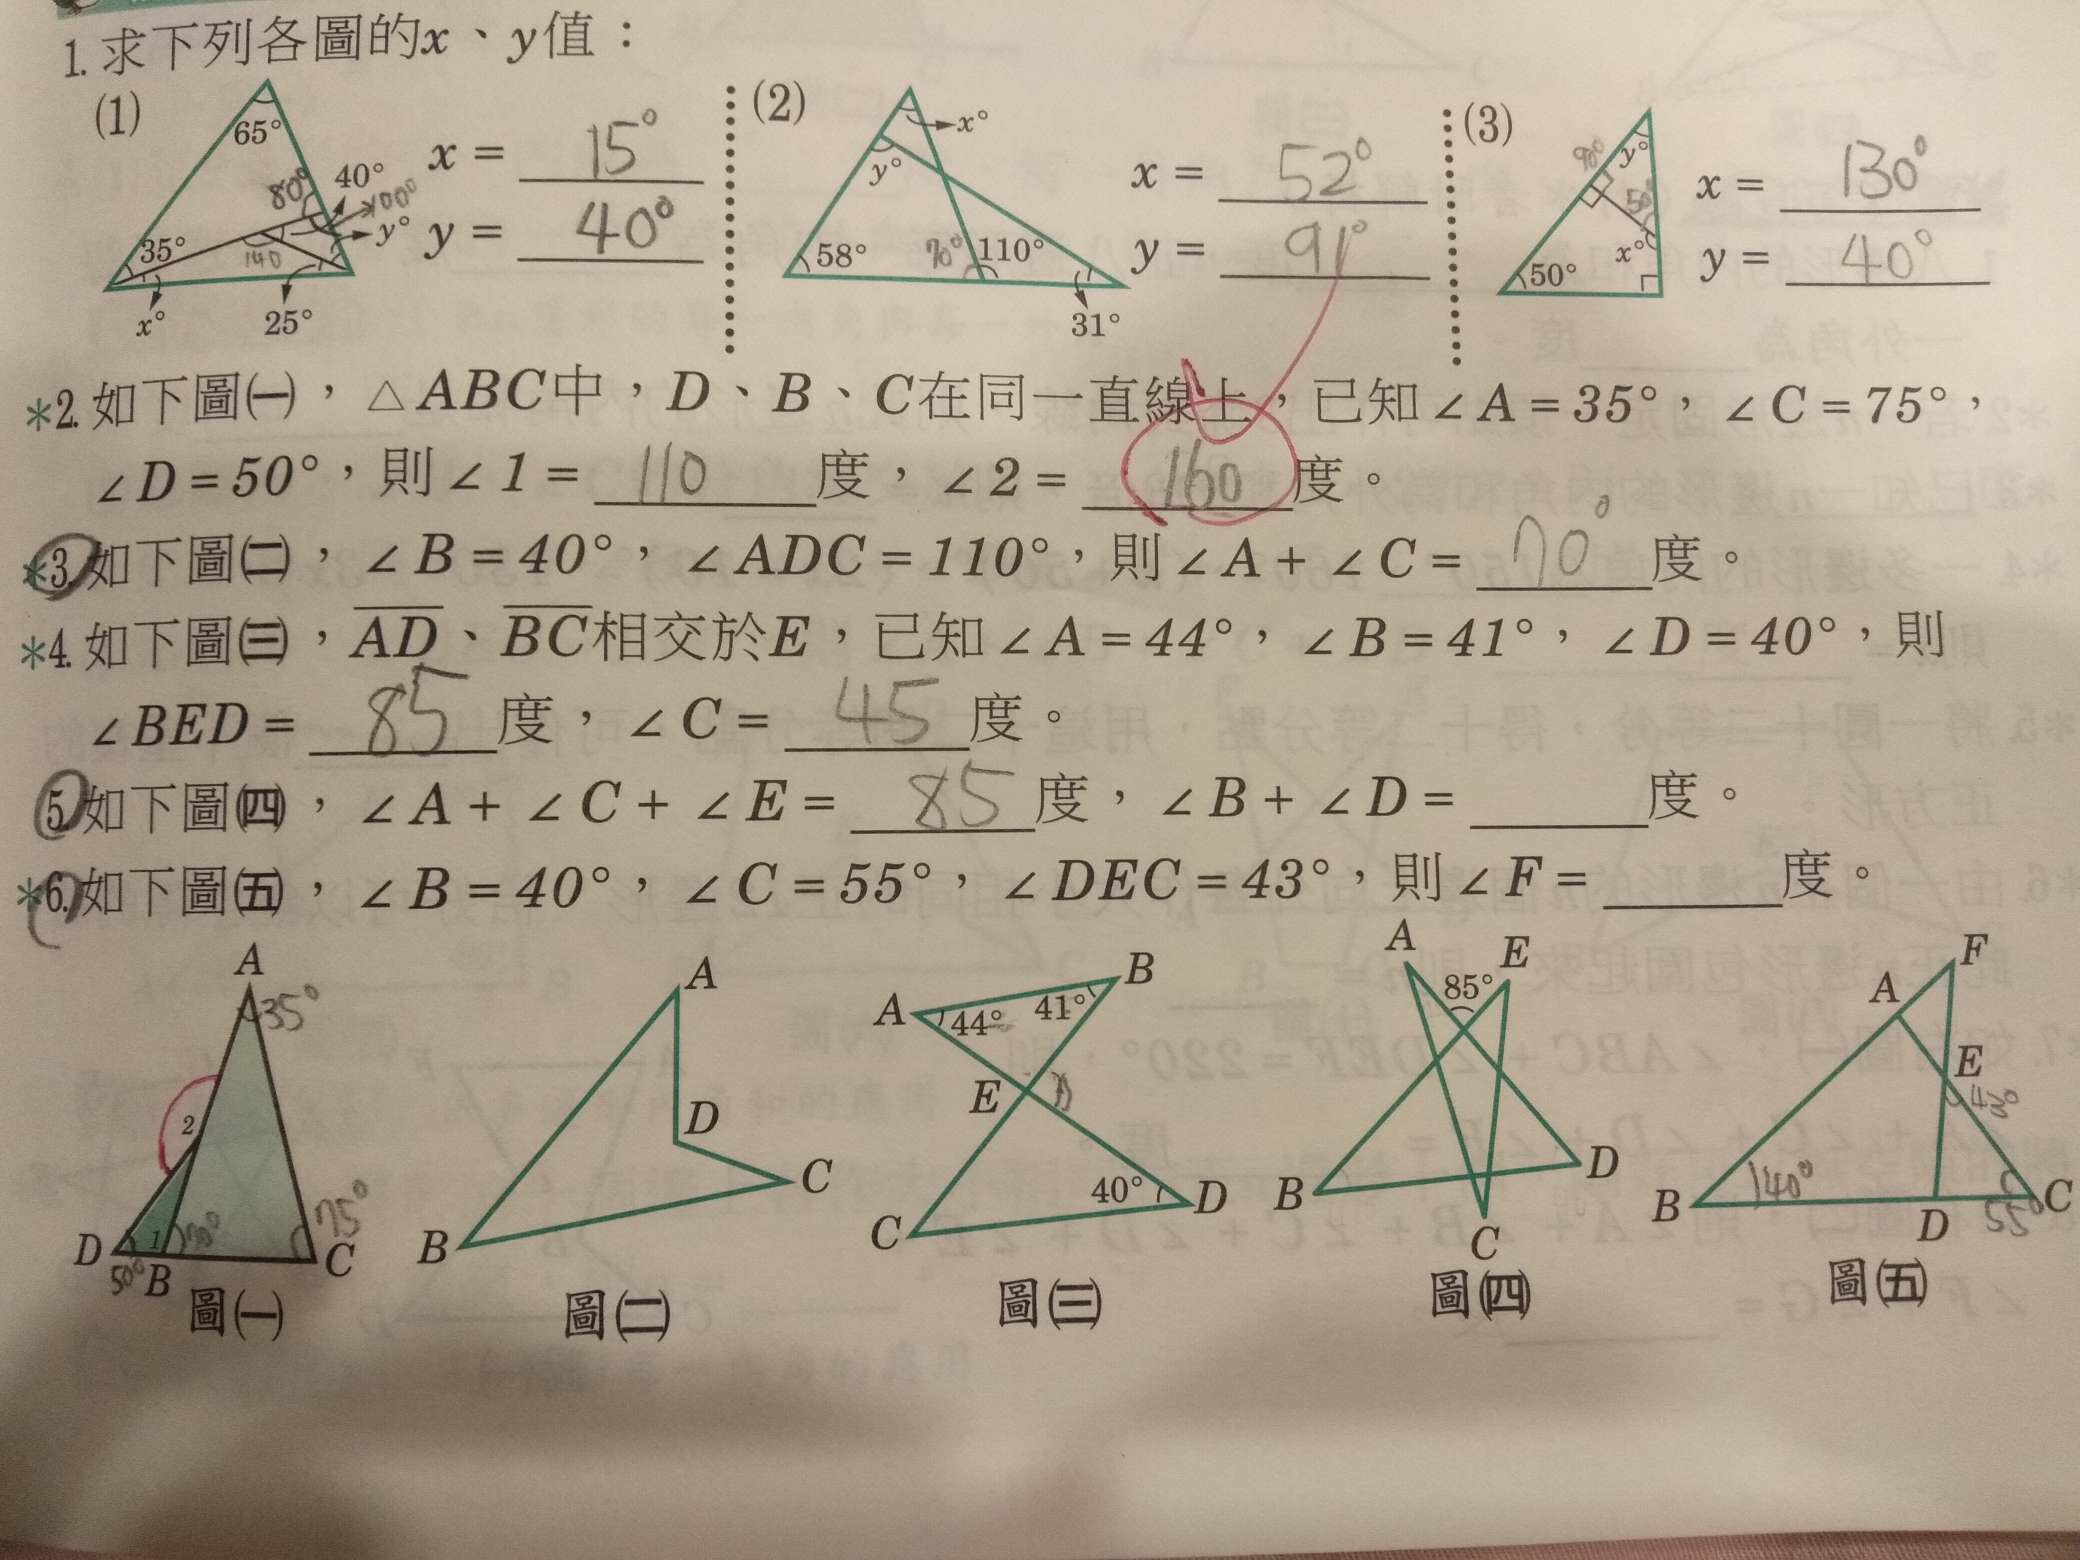 1. 求下列各圖的x、y值：
(1)
65°
80°
40°
100°
y°
35°
140
x°
25°
x = 15°
y = 40°
(2)
x°
y°
58°
70°
110°
31°
x = 52°
y = 91°
(3)
90°
y°
50°
x°
50°
x = 130°
y = 40°
*2. 如下圖㈠，△ABC中，D、B、C在同一直線上，已知∠A＝35°，∠C＝75°，
∠D＝50°，則∠1＝110度，∠2＝160度。
*3. 如下圖㈡，∠B＝40°，∠ADC＝110°，則∠A＋∠C＝70°度。
*4. 如下圖㈢，AD、BC相交於E，已知∠A＝44°，∠B＝41°，∠D＝40°，則
∠BED＝85度，∠C＝45度。
5. 如下圖㈣，∠A＋∠C＋∠E＝85度，∠B＋∠D＝度。
*6. 如下圖㈤，∠B＝40°，∠C＝55°，∠DEC＝43°，則∠F＝度。
A
35°
2
75°
D
1
70°
50°
B
C
圖㈠
A
D
C
B
圖㈡
B
A
41°
44°
E
40°
D
C
圖㈢
A
E
85°
B
D
C
圖㈣
F
A
E
43°
140°
B
D
55°
C
圖㈤